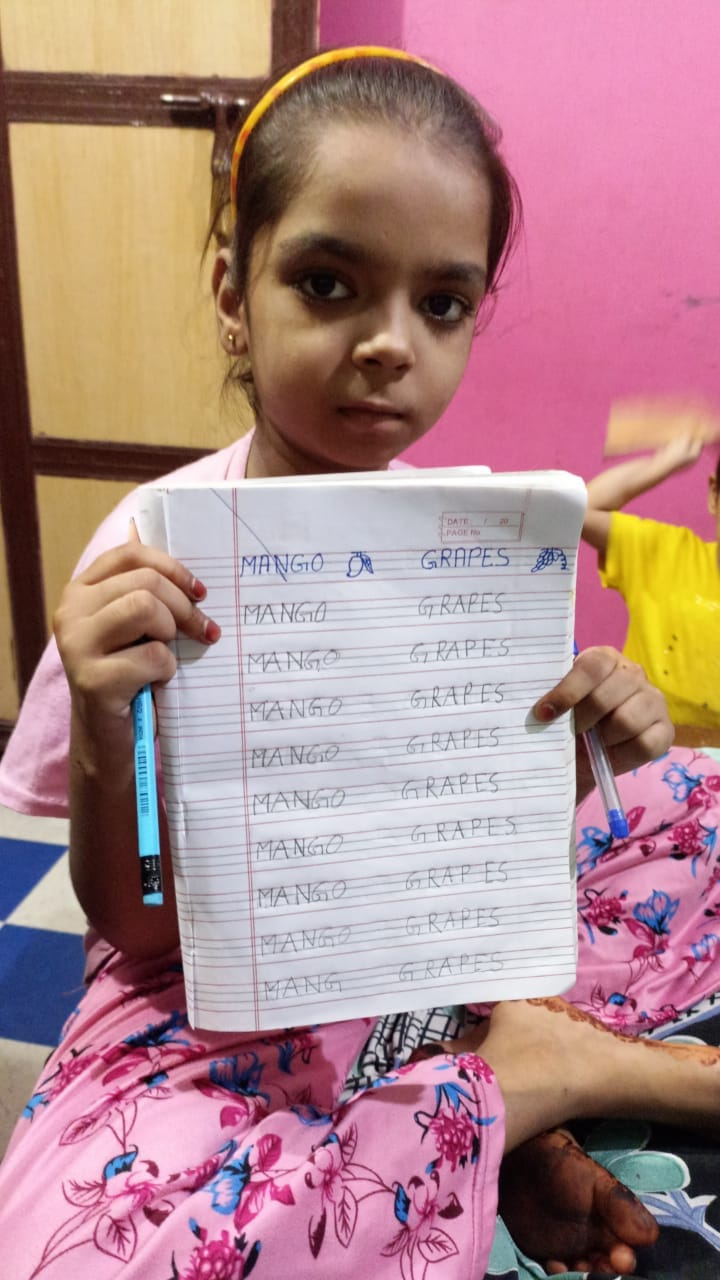 DATE: / 20
PAGE No
MANGO GRAPES
MANGO GRAPES
MANGO GRAPES
MANGO GRAPES
MANGO GRAPES
MANGO GRAPES
MANGO GRAPES
MANGO GRAPES
MANGO GRAPES
MANG GRAPES